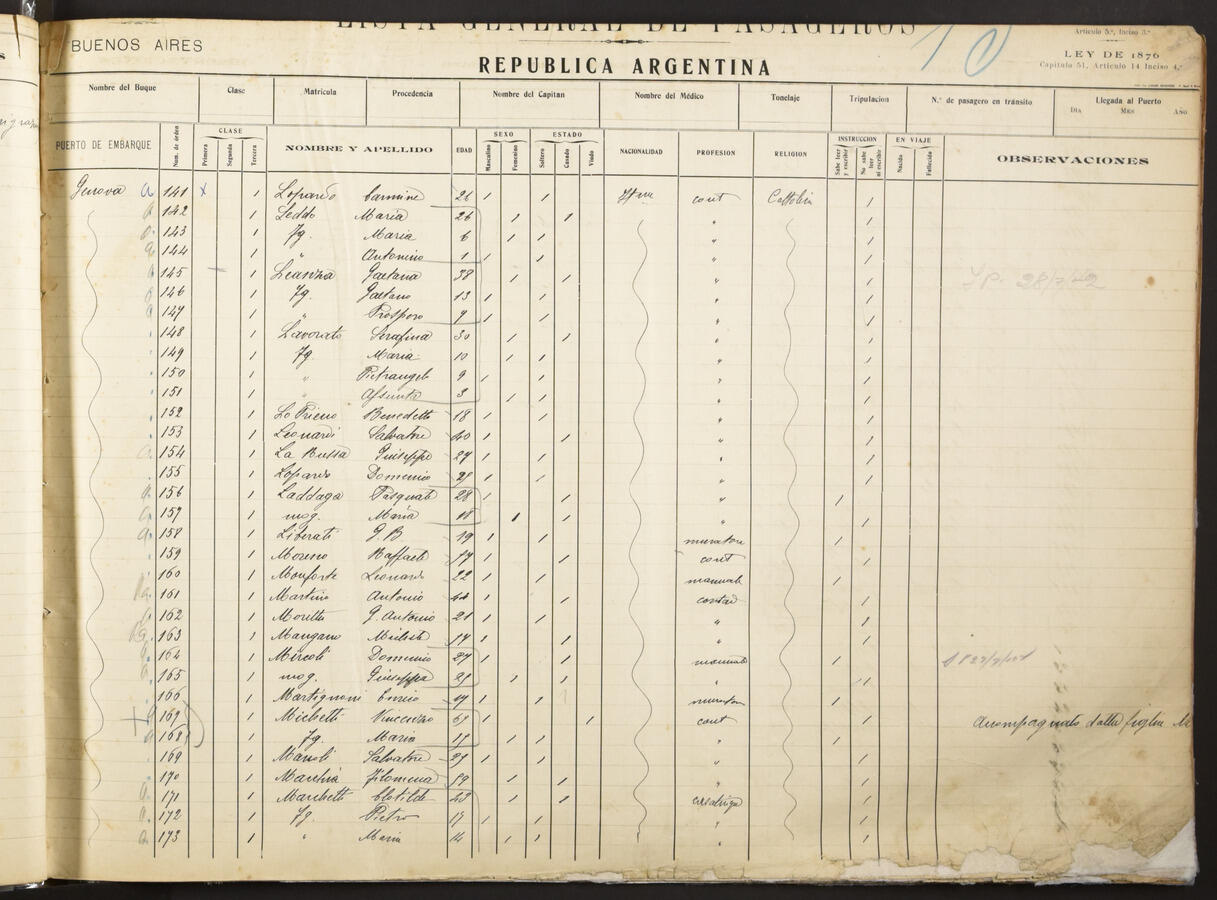 LISTA GENERAL DE PASAGEROS
Articulo 5º, Inciso 3º
BUENOS AIRES
10
LEY DE 1876
REPUBLICA ARGENTINA
Capitulo 51, Articulo 14 Inciso 4º
Nombre del Buque Clase Matricula Procedencia Nombre del Capitan Nombre del Médico Tonelaje Tripulacion N.º de pasagero en tránsito Llegada al Puerto
DIA MES AÑO
PUERTO DE EMBARQUE Num. de órden CLASE Primera Segunda Tercera NOMBRE Y APELLIDO EDAD SEXO Masculino Femenino ESTADO Soltero Casado Viudo NACIONALIDAD PROFESION RELIGION INSTRUCCION Sabe leer y escribir No sabe leer ni escribir EN VIAJE Nacido Fallecido OBSERVACIONES
Genova a 141 x 1 Lopardo Carmine 26 1 1 cont 1
142 1 Leddo Maria 26 1 1 " 1
143 1 fg. Maria 6 1 1 " 1
144 1 " Antonino 1 1 1 " 1
145 1 Gaetana 38 1 1 " 1
146 1 fg. Gaetano 13 1 1 " 1
147 1 " Prospero 9 1 1 " 1
148 1 Lavorato Serafina 30 1 1 " 1
149 1 fg. Maria 10 1 1 " 1
150 1 " Pietrangelo 9 1 1 " 1
151 1 " Assunta 3 1 1 " 1
152 1 Lo Prieno Benedetto 18 1 1 " 1
153 1 Leonardi Salvatore 40 1 1 " 1
154 1 La Bussa Giuseppe 27 1 1 " 1
155 1 Lopardo Domenico 1 1 " 1
156 1 Laddaga Pasquale 28 1 1 " 1
157 1 mog. Maria 18 1 1 " 1
158 1 Liberati G. B 19 1 1 muratore 1
159 1 Moreno Raffaele 1 1 cont 1
160 1 Monforte Leonardo 22 1 1 manuale 1
161 1 Martino Antonio 44 1 1 contad 1
162 1 Moretti G. Antonio 21 1 1 " 1
163 1 Mangano Michele 1 1 " 1
164 1 Mircoli Domenico 27 1 1 manuale 1
165 1 mog. Giuseppa 1 1 " 1
166 1 Martignoni Enrico 1 1 muratore 1
167 1 Michetti Vincenzo 1 1 cont 1 Acompagnato dalla figlia
168 1 fg. Maria 17 1 1 " 1
169 1 Salvatore 1 1 " 1
170 1 Filomena 59 1 1 " 1
171 1 Marchetti Clotilde 1 1 casalinga 1
172 1 fg. Pietro 17 1 1 " 1
173 1 " Maria 14 1 1 " 1